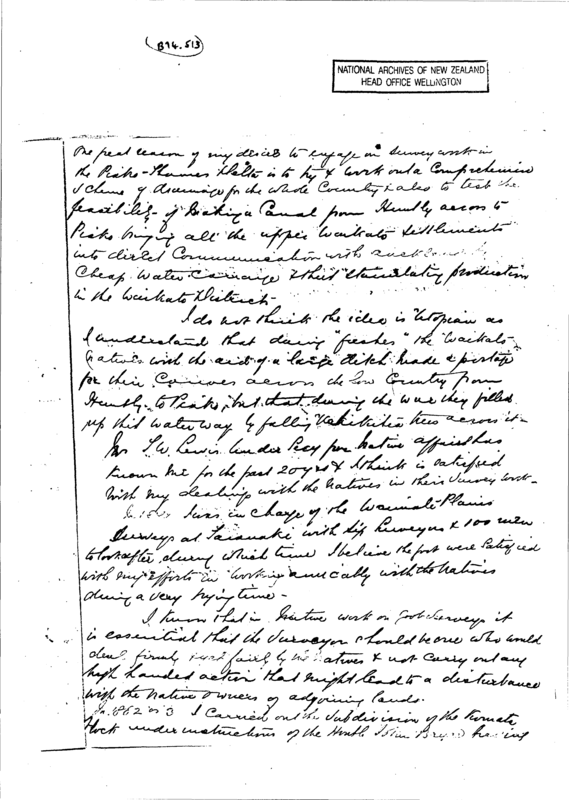 (B94.513)
NATIONAL ARCHIVES OF NEW ZEALAND
HEAD OFFICE WELLINGTON
The great reason of my desire to engage in Survey work in
the Piako-Thames Delta is to try & work out a Comprehensive
Scheme of drainage for the whole Country & also to test the
feasibility of making a Canal from Huntly across to
Piako bringing all the upper Waikato Settlements
into direct Communication with
Cheap Water Carriage & thus stimulating production
in the Waikato District
I do not think the idea is Utopian as
I understand that during "freshes" the Waikato
Natives with the aid of a large ditch made a portage
for their Canoes across the low Country from
Huntly to Piako, but that during the war they filled
up this water way by falling Kahikatea trees across it -
Mr T.W. Lewis Under Secy for Native affairs has
known me for the past 20 yrs & I think is satisfied
with my dealings with the Natives in their Survey work -
I was in charge of the Waimate Plains
Surveys at Taranaki with Six Surveyors & 100 men
to look after, during which time I believe the govt were Satisfied
with my efforts in working amicably with the Natives
during a very trying time -
I know that in Native work on Govt Surveys it
is essential that the Surveyor should be one who would
deal firmly and fairly by the Natives & not carry out any
high handed action that might lead to a disturbance
with the Native Owners of adjoining lands.
In 1862 or 3 I Carried out the Subdivision of the
Block under instructions of the Honble John having